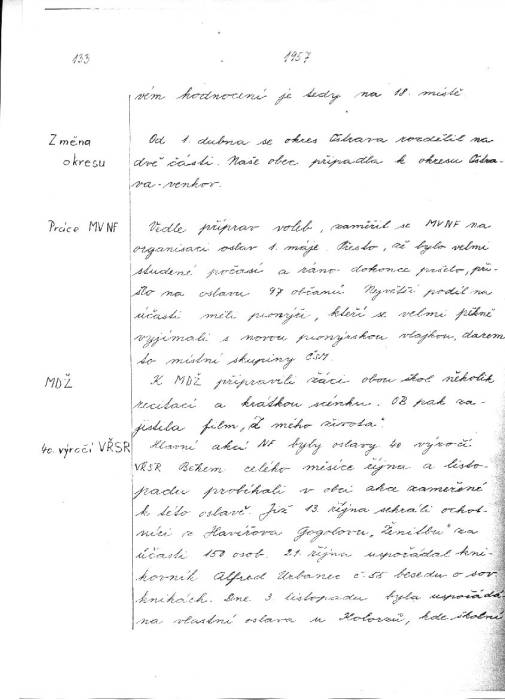 133
1957
vém hodnocení je tedy na 18. místě
Změna
okresu
Od 1. dubna se okres Ostrava rozdělil na
dvě části. Naše obec připadla k okresu Ostra-
va-venkov.
Práce MVNF
Vedle příprav voleb, zaměřil se MVNF na
organisaci oslav 1. máje. Přesto, že bylo velmi
studené počasí a ráno dokonce pršelo, při-
šlo na oslavu 97 občanů. Největší podíl na
účasti měli pionýři, kteří se velmi pěkně
vyjímali s novou pionýrskou vlajkou, darem
to místní skupiny ČSM.
MDŽ
K MDŽ připravili žáci obou škol několik
recitací a krátkou scénku. OB pak za-
jistila film „Z mého života".
40. výročí VŘSR
Hlavní akcí NF byly oslavy 40 výročí
VŘSR Během celého měsíce října a listo-
padu probíhali v obci akce zaměřené
k této oslavě. Již 13. října sehráli ochot-
níci z Havířova Gogolovu „Ženitbu" za
účasti 150 osob. 21. října uspořádal kni-
hovník Alfred Urbanec č. 55 besedu o sov.
knihách. Dne 3 listopadu byla uspořádá-
na vlastní oslava u Kolorzů, kde školní